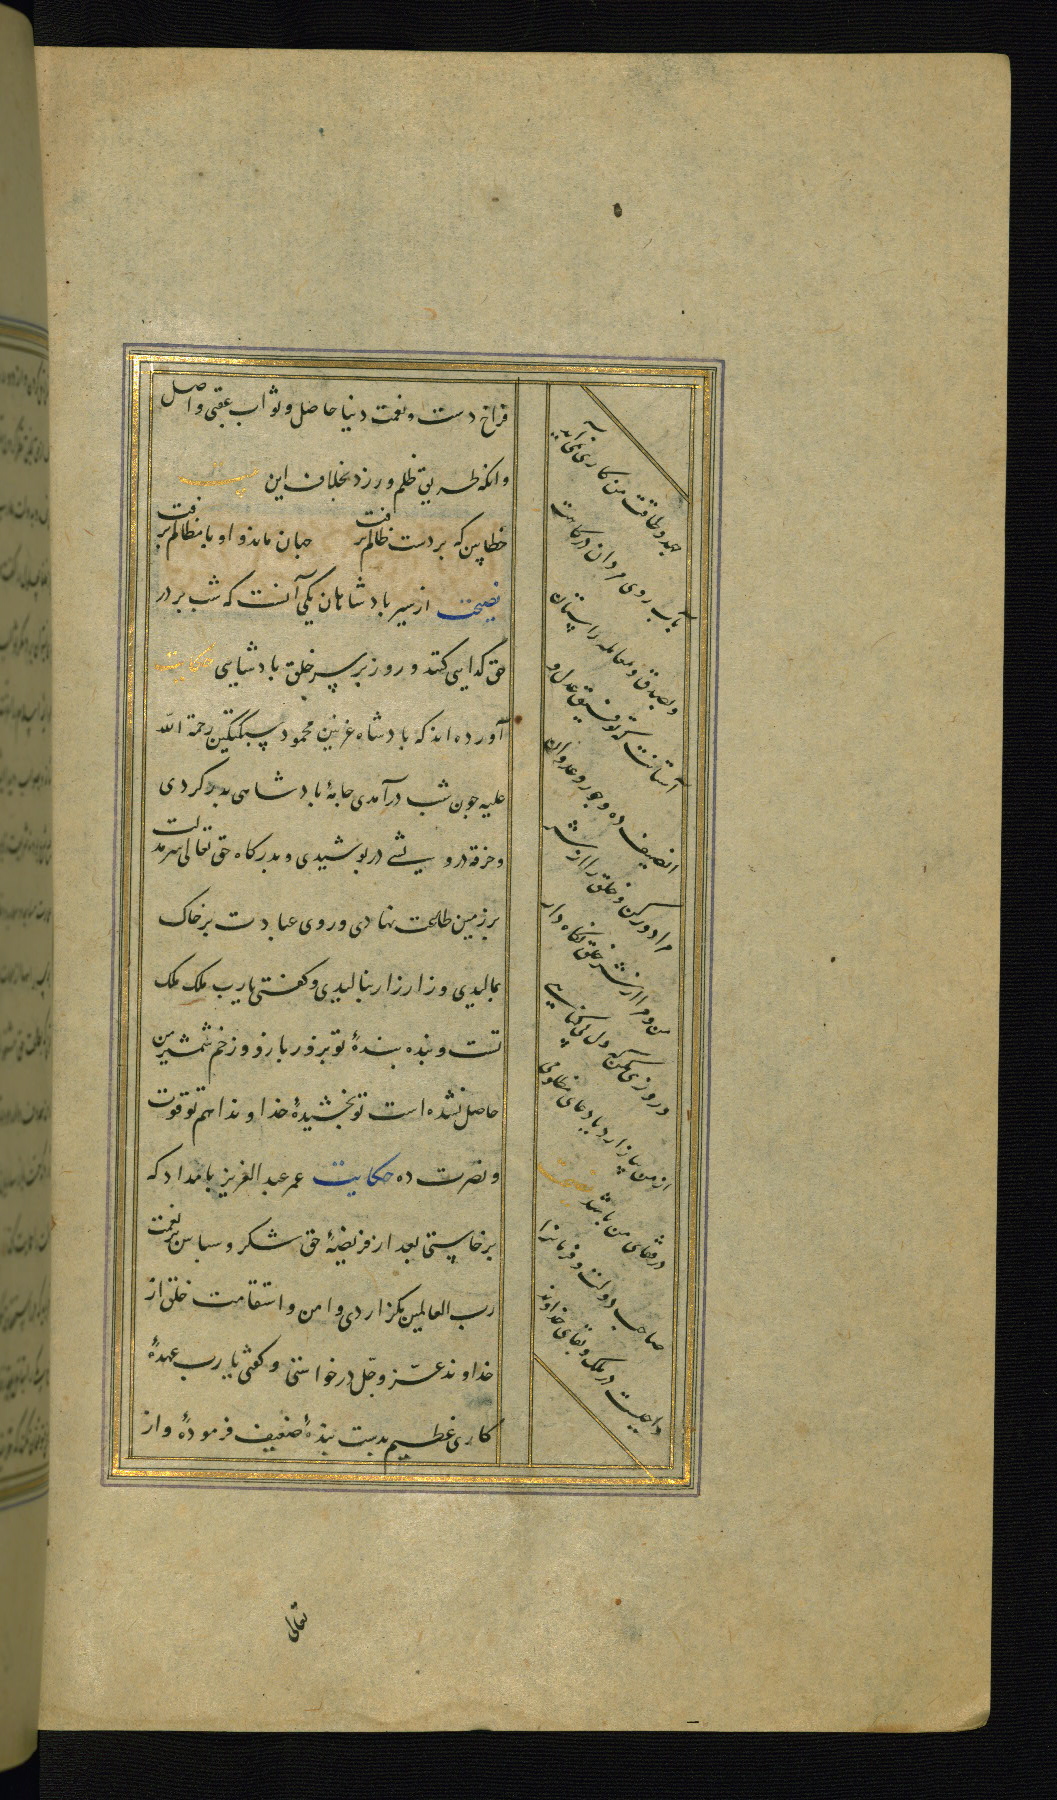 فراخ دست و نعمت دنیا حاصل و ثواب عقبی واصل
وانکه طریق ظلم ورزد بخلاف این بیت
خطابین که بر دست ظالم برفت جهان ماند و او با مظالم برفت
نصیحت از سیر پادشاهان یکی آنست که شب بر در
حق گدایی کنند و روز بر سر خلق پادشاهی حکایت
آورده اند که پادشاه غزنین محمود سبکتکین رحمة الله
علیه چون شب درآمدی جامهٔ پادشاهی بدر کردی
و خرقهٔ درویشی در پوشیدی و بدرگاه حق تعالی سر مذلت
بر زمین طاعت نهادی و روی عبادت بر خاک
بمالیدی و زار زار بنالیدی و گفتی یارب ملک ملک
تست و بنده بندهٔ تو بزور بازو و زخم شمشیر من
حاصل نشده است تو بخشیدهٔ خداوندا هم تو قوت
و نصرت ده حکایت عمر عبد العزیز بامداد که
برخاستی بعد از فریضهٔ حق شکر و سپاس نعمت
رب العالمین بگزاردی و امن و استقامت خلق از
خداوند عز و جل درخواستی و گفتی یا رب عهدهٔ
کاری عظیم بدست بندهٔ ضعیف فرمودهٔ و از
جهد و طاقت من کاری نمی آید
بآب روی مردان درگاهت
و بصدق و معاملهٔ راستان
آستانت که توفیق عدل و
انصاف ده و جور و عدوان
مرا دور کن و خلق را از شر
من و مرا از شر خلق نگاه دار
و روزی مکن که دل بی گناهی
از من بیازارد یا دعای مظلومی
در قفای من باشد نصیحت
صاحب دولت و فرمانرا
واجبست در ملک و بقای خداوند
تعالی